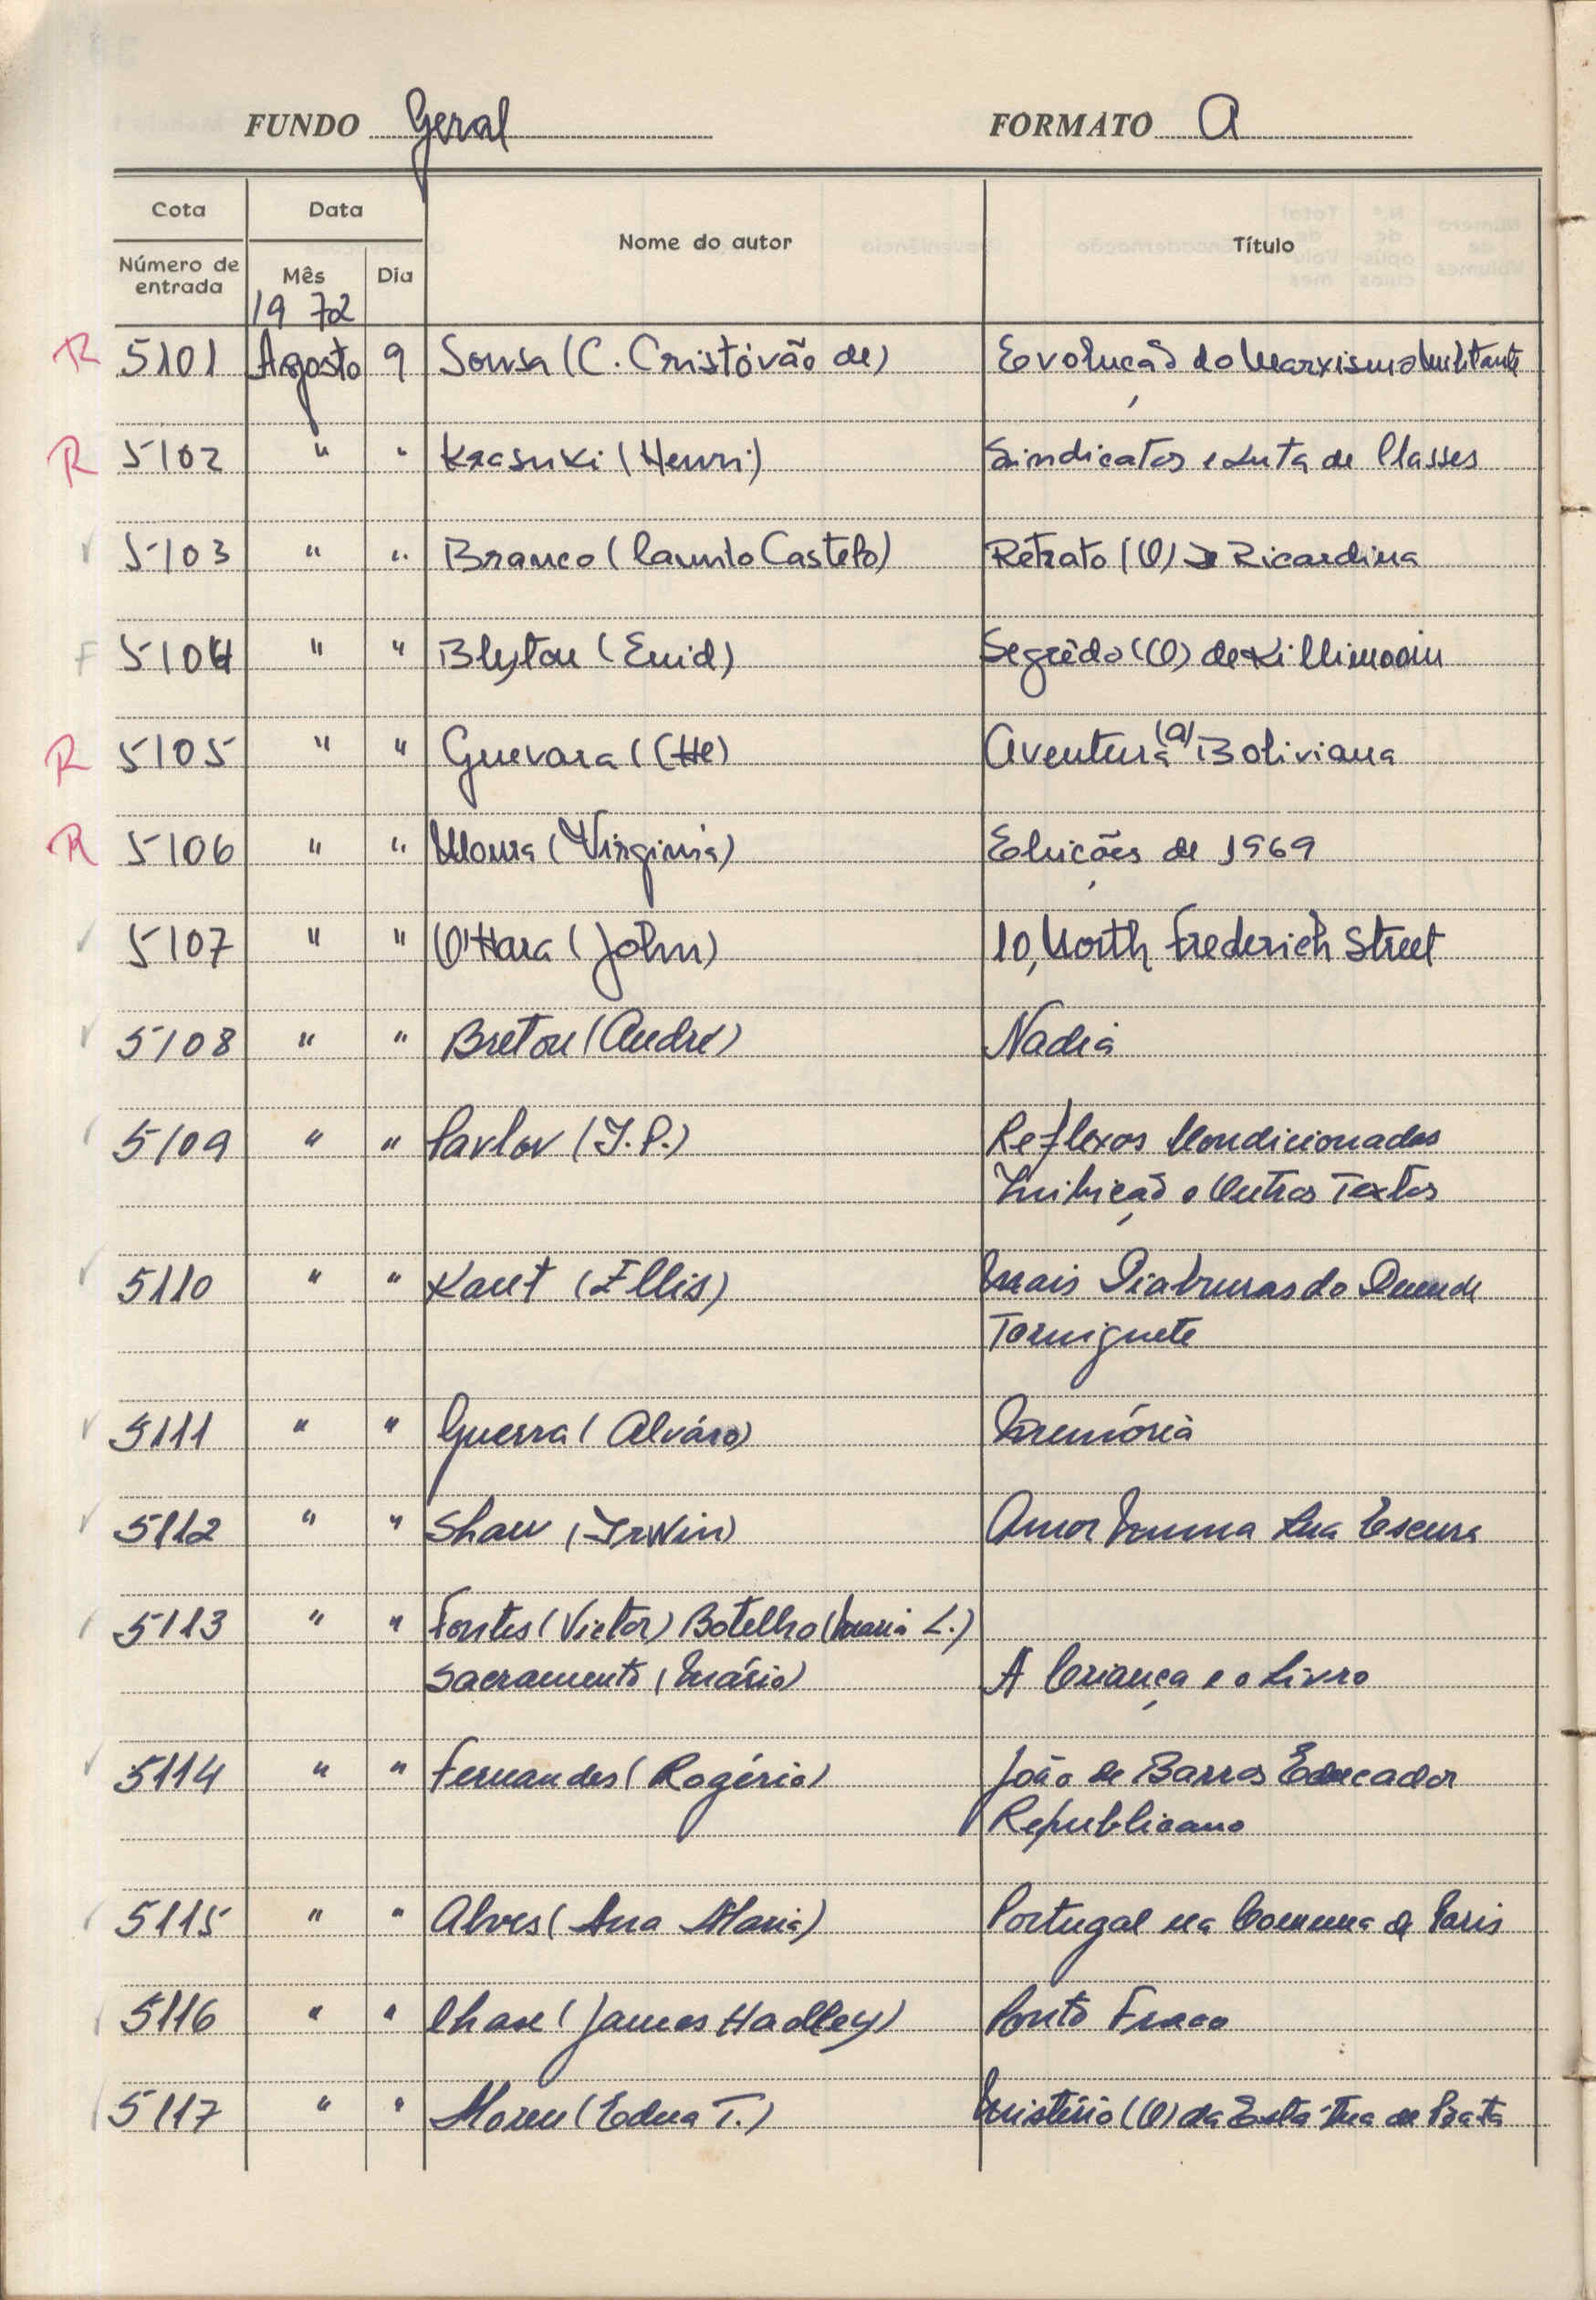 FUNDO Geral FORMATO A
Cota Data Nome do autor Título
Número de entrada Mês Dia
19 72
R 5101 Agosto 9 Sousa (C. Cristóvão de) Evolução do Marxismo Militante
R 5102 " " Krasuki (Henri) Sindicatos e Luta de Classes
5103 " " Branco (Camilo Castelo) Retrato (O) de Ricardina
F 5104 " " Blyton (Enid) Segrêdo (O) de Killimooin
R 5105 " " Guevara (Che) Aventura (A) Boliviana
R 5106 " " Moura (Virginia) Eleições de 1969
5107 " " O'Hara (John) 10, North Frederich Street
5108 " " Breton (André) Nadia
5109 " " Pavlov (I.P.) Reflexos Condicionados
Inibição e Outros Textos
5110 " " Kaut (Ellis) Mais Diabruras do Duende
Torniguete
5111 " " Guerra (Alváro) Memória
5112 " " Shaw (Irwin) Amor Numa Rua Escura
5113 " " Fontes (Victor) Botelho (Maria L.)
Sacramento (Mário) A Criança e o Livro
5114 " " Fernandes (Rogério) João de Barros Educador
Republicano
5115 " " Alves (Ana Maria) Portugal na Comuna de Paris
5116 " " Chase (James Hadley) Ponto Fraco
5117 " " Moreu (Edna T.) Mistério (O) da Estátua de Prata